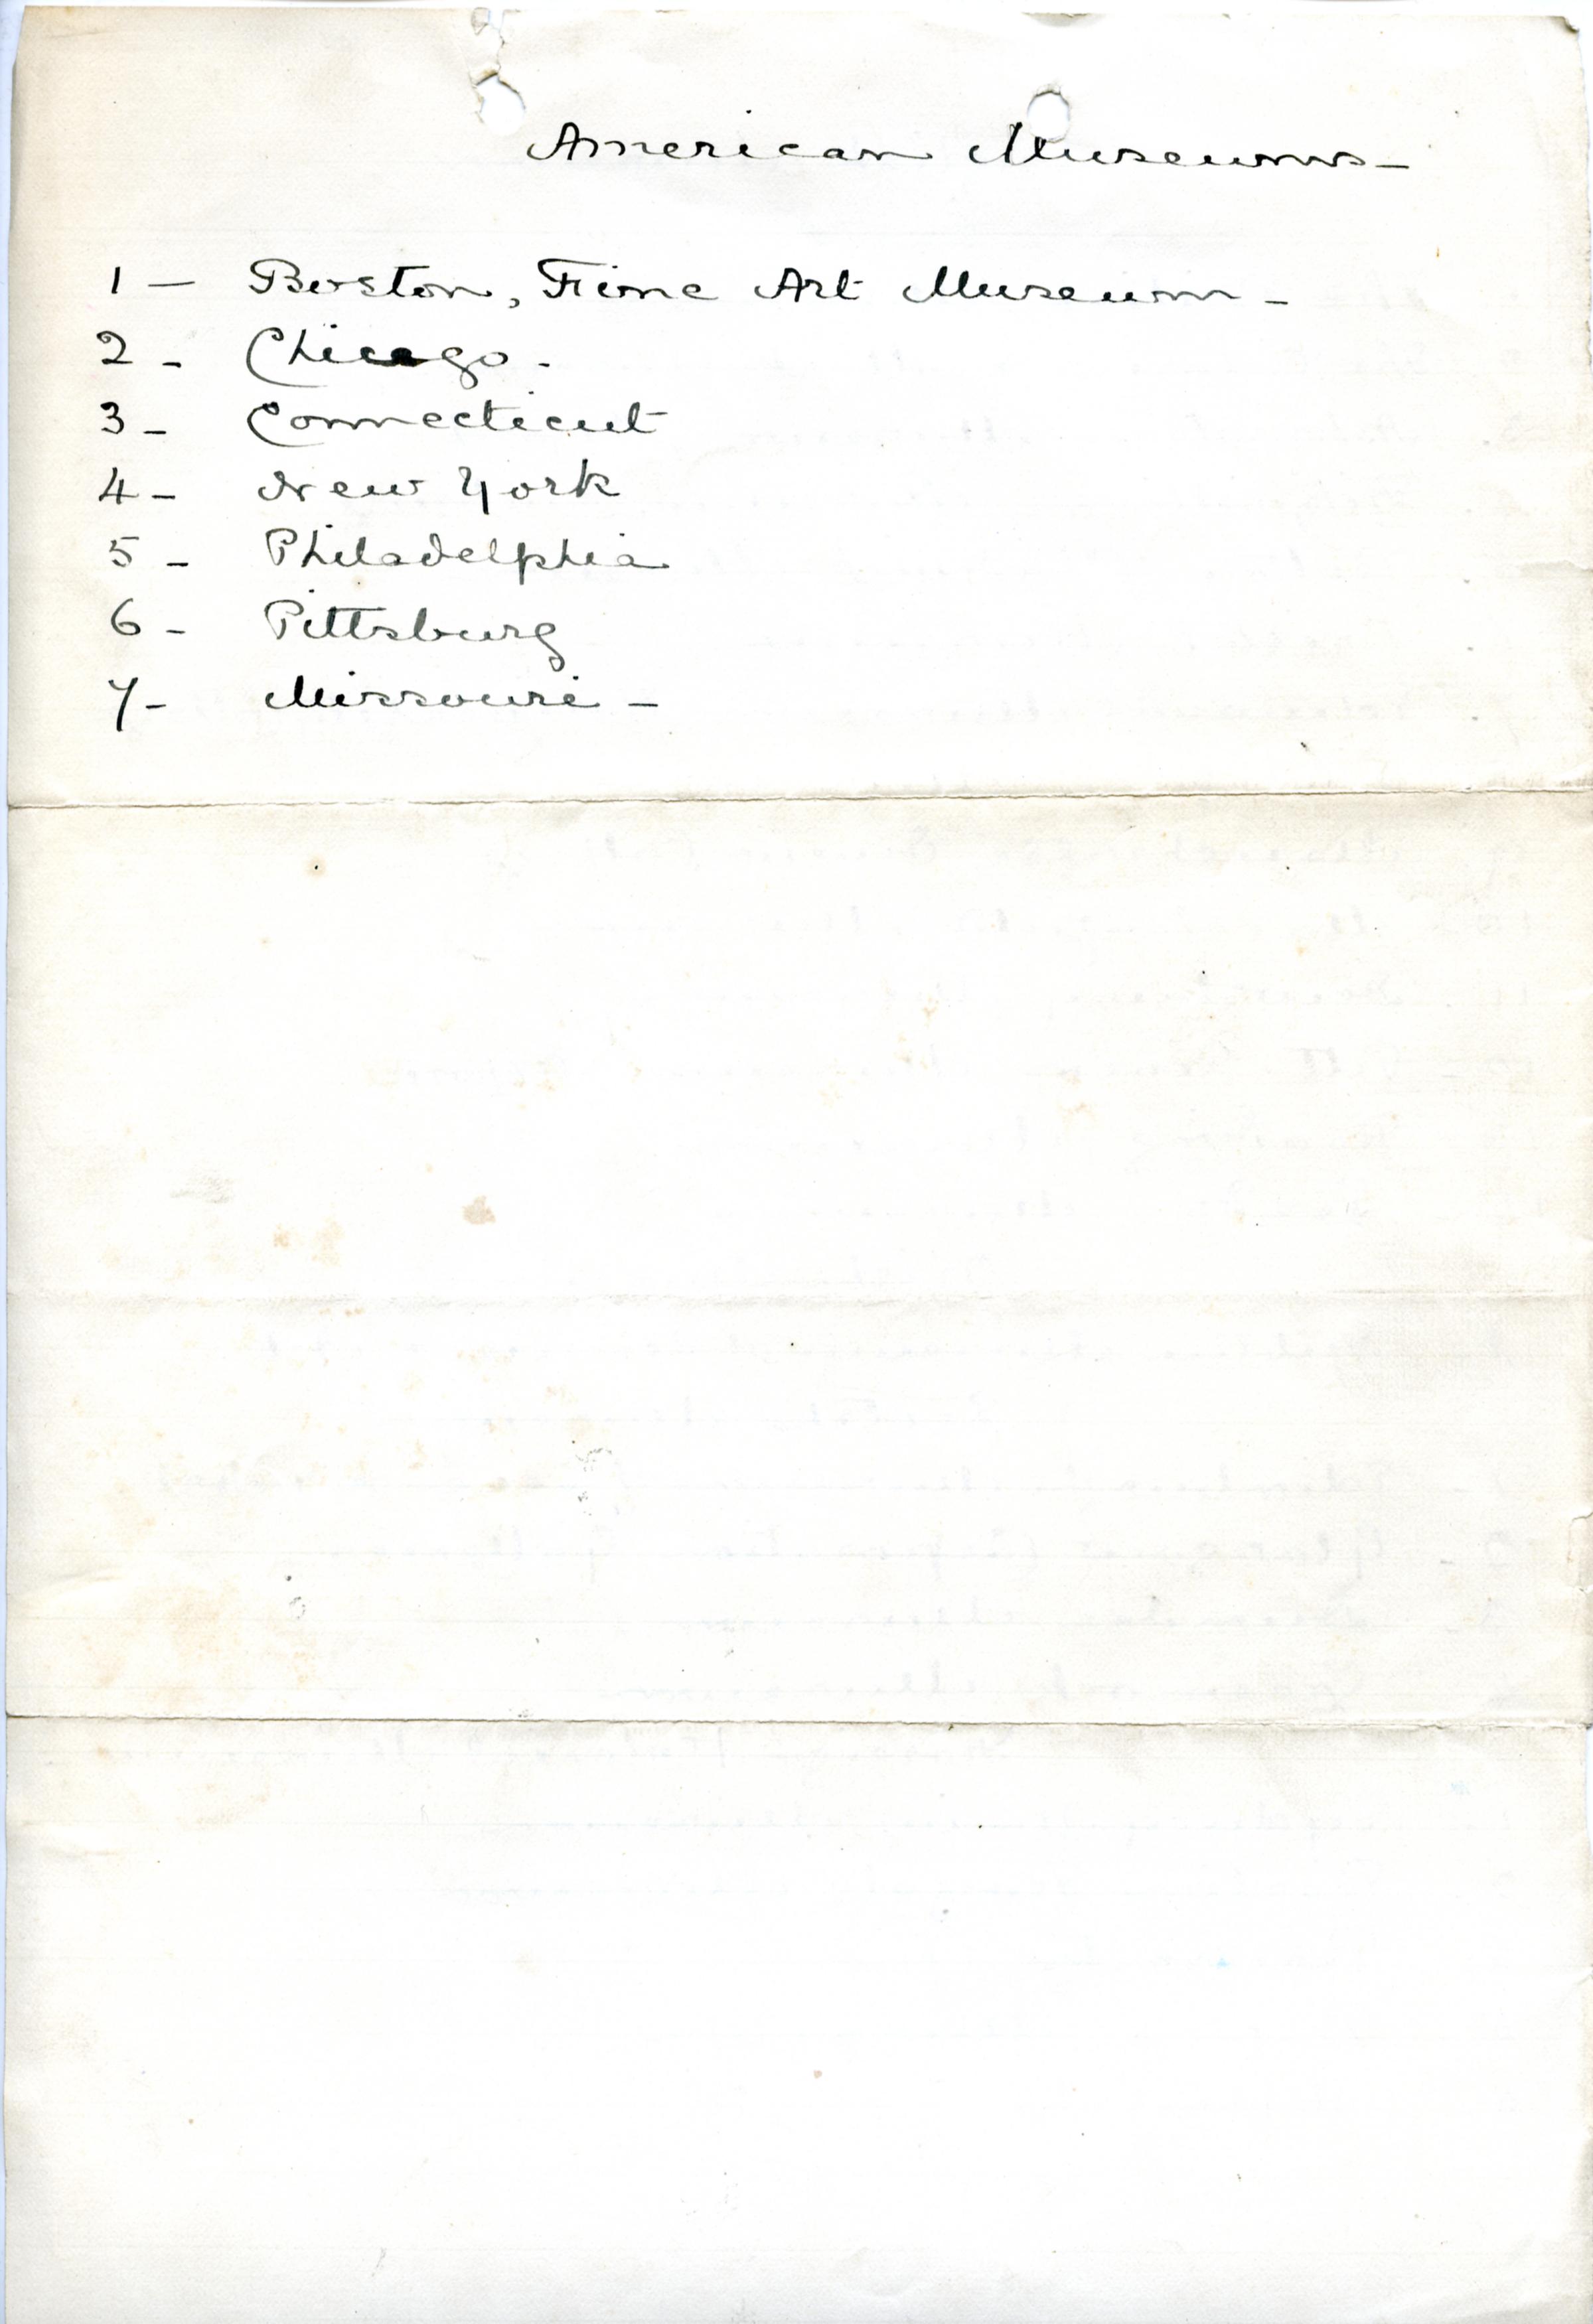 American Museums -
1 - Boston, Fine Art Museum -
2 - Chicago -
3 - Connecticut
4 - New York
5 - Philadelphia
6 - Pittsburg
7 - Missouri -